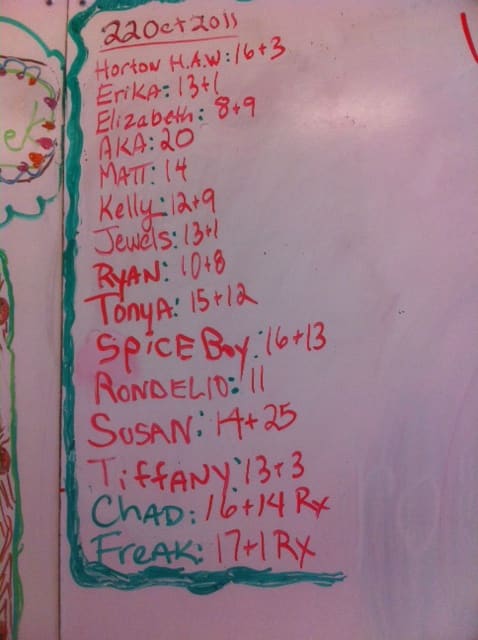 22 Oct 2011
Horton H.A.W: 16+3
Erika: 13+1
Elizabeth: 8+9
AKA: 20
MATT: 14
Kelly: 12+9
Jewels: 13+1
RYAN: 10+8
TonyA: 15+12
SPiCE Boy: 16+13
RONDELIO: 11
SUSAN: 14+25
TiffANY: 13+3
CHAD: 16+14 Rx
FreAK: 17+1 RX